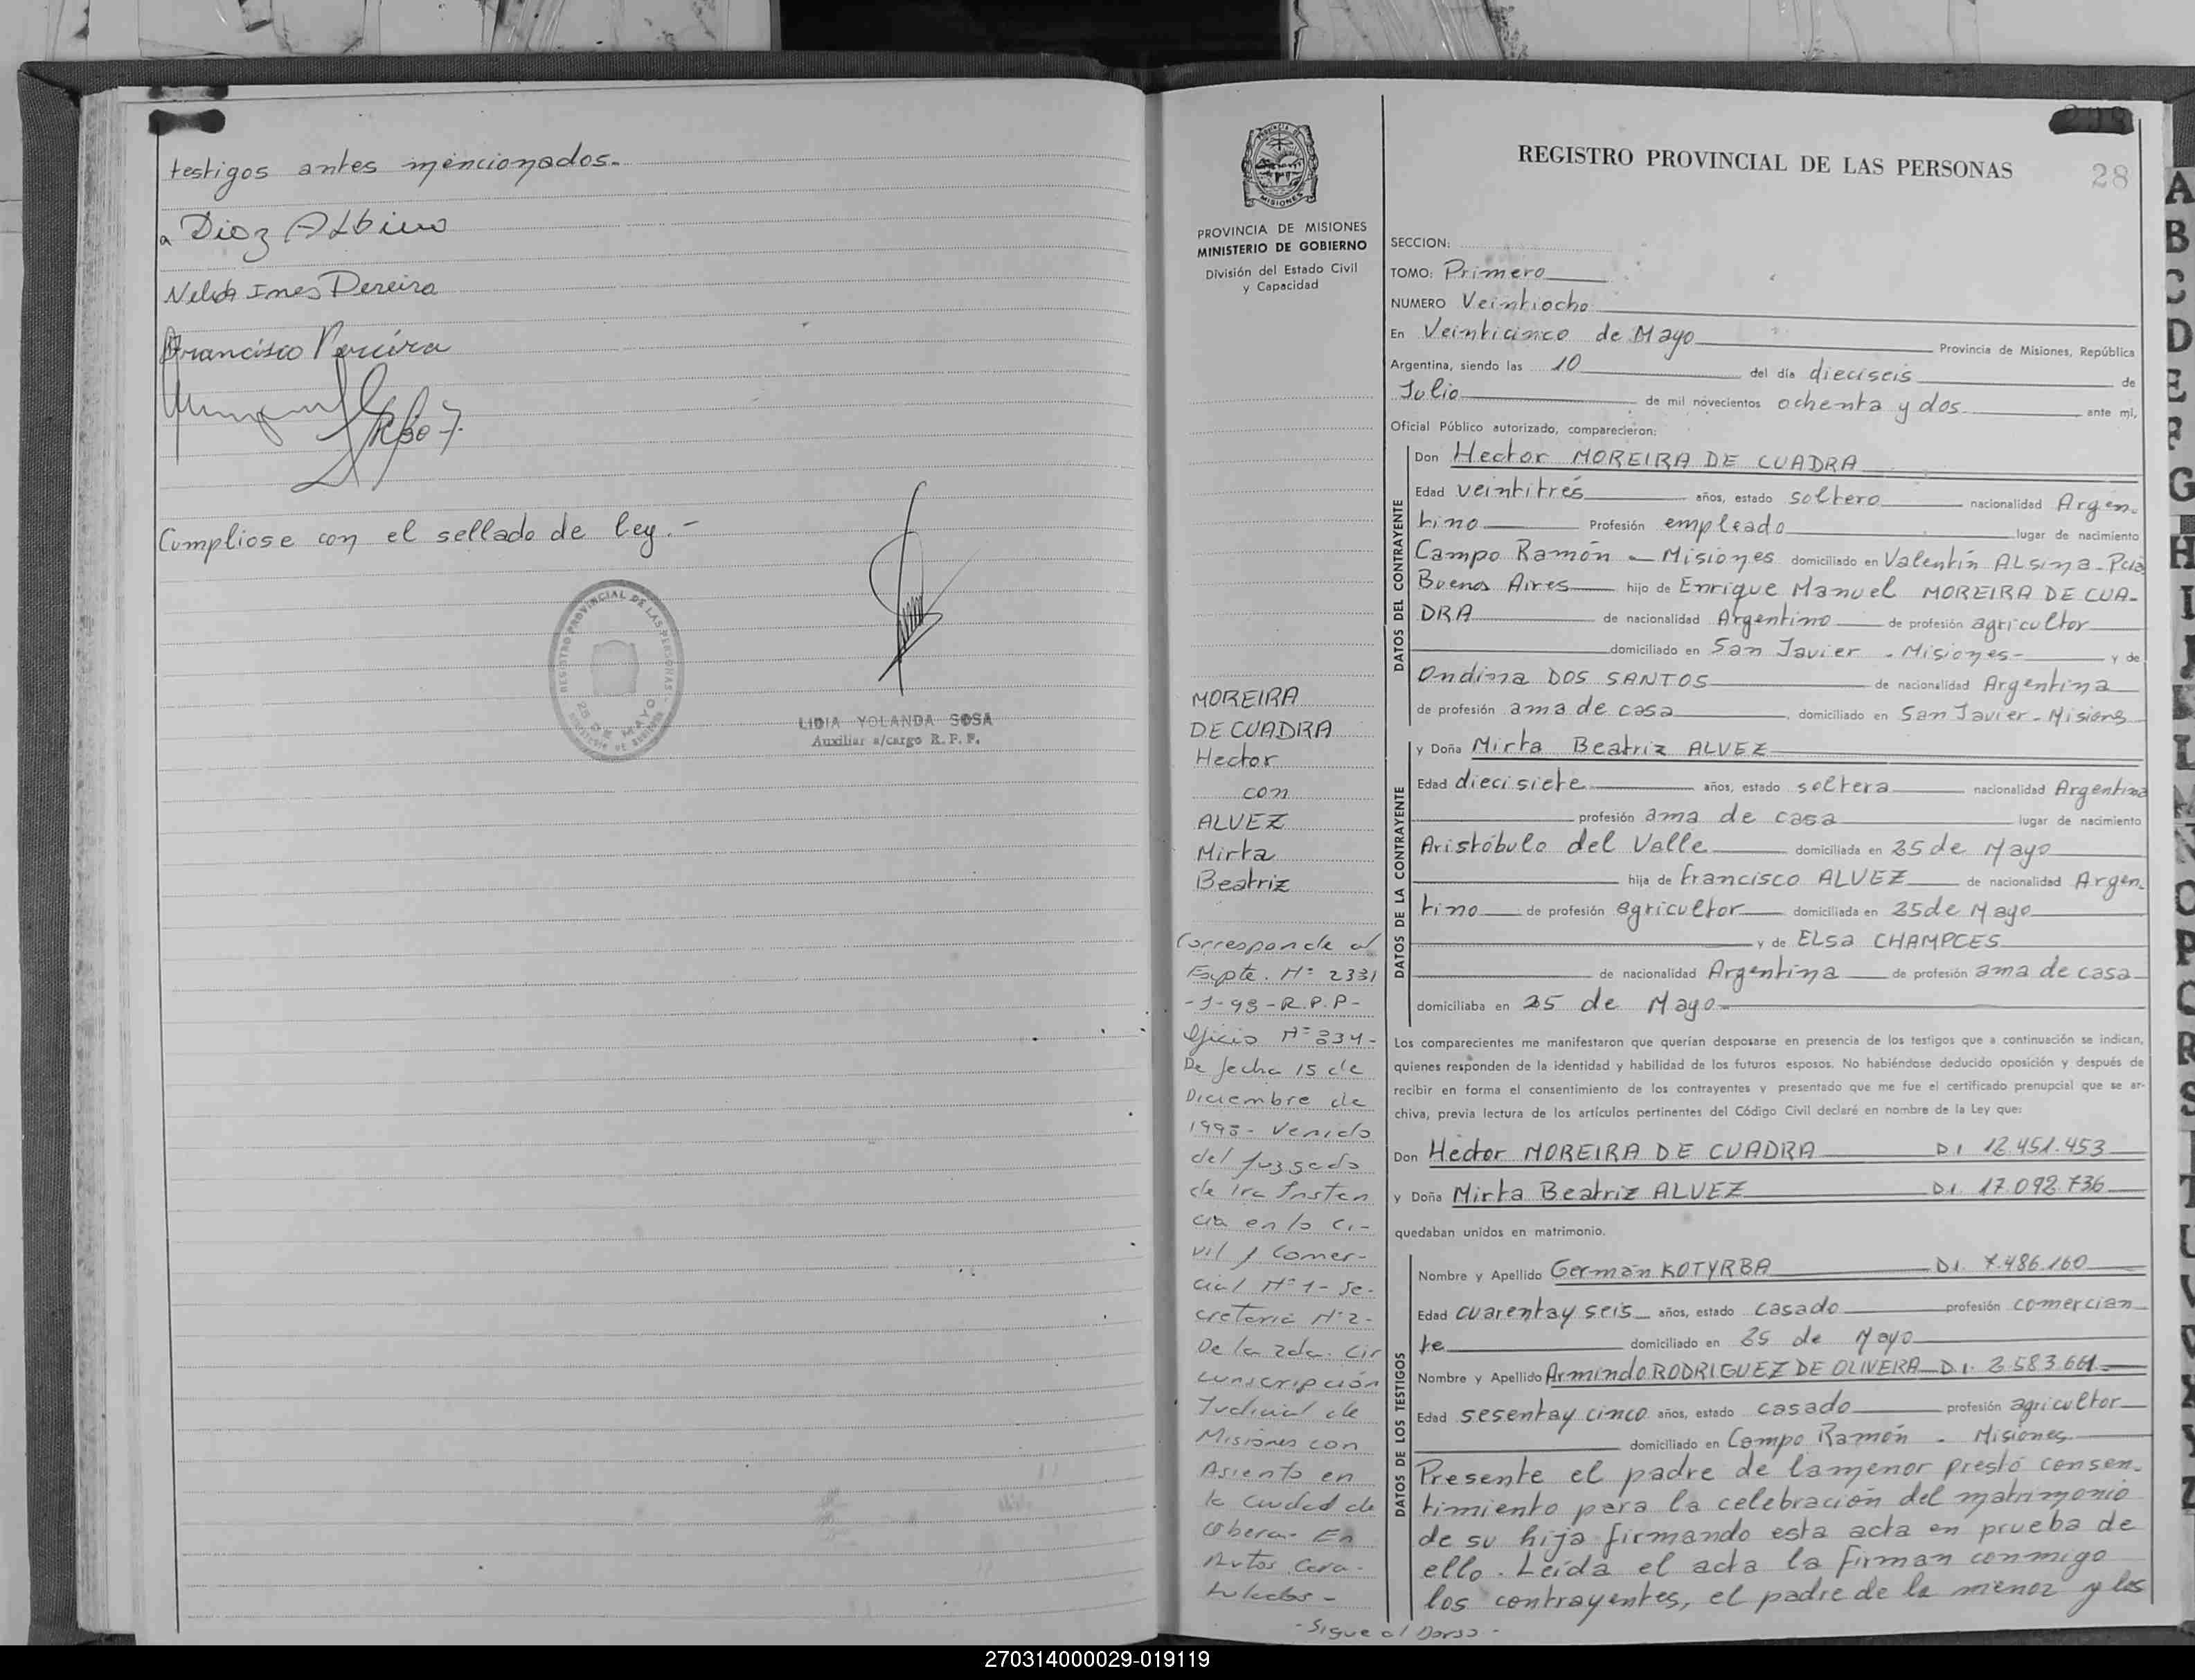 testigos antes mencionados.
a Dioz Albino
Nelida Ines Pereira
Francisco Pereira
Cumpliose con el sellado de ley.-
REGISTRO PROVINCIAL DE LAS PERSONAS
25 DE MAYO
LIDIA YOLANDA SOSA
Auxiliar a/cargo R. P. P.
MISIONES
PROVINCIA DE MISIONES
MINISTERIO DE GOBIERNO
División del Estado Civil
y Capacidad
MOREIRA
DE CUADRA
Hector
con
ALVEZ
Mirta
Beatriz
Corresponde al
Expte. Nº 2331
-J-93-R.P.P-
Oficio Nº 834-
De fecha 15 de
Diciembre de
1993- Venido
del Juzgado
de 1ra Instan
cia en lo Ci-
vil y Comer-
cial Nº 1- Se-
cretaria Nº 2-
De la 2da. Cir
cunscripción
Judicial de
Misiones con
Asiento en
la Ciudad de
Obera- En
Autos Cara-
tulados-
-Sigue al Dorso-
REGISTRO PROVINCIAL DE LAS PERSONAS
28
SECCION:
TOMO: Primero
NUMERO Veintiocho
En Veinticinco de Mayo Provincia de Misiones, República
Argentina, siendo las 10 del día dieciseis de
Julio de mil novecientos ochenta y dos ante mi,
Oficial Público autorizado, comparecieron:
DATOS DEL CONTRAYENTE
Don Hector MOREIRA DE CUADRA
Edad veintitrés años, estado soltero nacionalidad Argen-
tino Profesión empleado lugar de nacimiento
Campo Ramón - Misiones domiciliado en Valentín ALsina-Pcia
Buenos Aires hijo de Enrique Manuel MOREIRA DE CUA-
DRA de nacionalidad Argentino de profesión agricultor
domiciliado en San Javier - Misiones- y de
Ondina DOS SANTOS de nacionalidad Argentina
de profesión ama de casa domiciliado en San Javier-Misiones
DATOS DE LA CONTRAYENTE
y Doña Mirta Beatriz ALVEZ
Edad diecisiete años, estado soltera nacionalidad Argentina
profesión ama de casa lugar de nacimiento
Aristóbulo del Valle domiciliada en 25 de Mayo
hija de Francisco ALVEZ de nacionalidad Argen-
tino de profesión agricultor domiciliada en 25 de Mayo
y de ELsa CHAMPCES
de nacionalidad Argentina de profesión ama de casa
domiciliaba en 25 de Mayo-
Los comparecientes me manifestaron que querían desposarse en presencia de los testigos que a continuación se indican,
quienes responden de la identidad y habilidad de los futuros esposos. No habiéndose deducido oposición y después de
recibir en forma el consentimiento de los contrayentes y presentado que me fue el certificado prenupcial que se ar-
chiva, previa lectura de los artículos pertinentes del Código Civil declaré en nombre de la Ley que:
Don Héctor MOREIRA DE CUADRA D.I 12.451.453
y Doña Mirta Beatriz ALVEZ D.I. 17.092.736
quedaban unidos en matrimonio.
DATOS DE LOS TESTIGOS
Nombre y Apellido Germán KOTYRBA D.I. 7.486.160
Edad cuarentay seis años, estado casado profesión comercian
te domiciliado en 25 de Mayo
Nombre y Apellido Armindo RODRIGUEZ DE OLIVERA D.I. 2.583.661
Edad sesentay cinco años, estado casado profesión agricultor
domiciliado en Campo Ramón - Misiones
Presente el padre de la menor prestó consen-
timiento para la celebración del matrimonio
de su hija firmando esta acta en prueba de
ello. Leída el acta la firman conmigo
los contrayentes, el padre de la menor y los
A
B
C
D
E
F
G
H
I
J
K
L
M
N
O
P
Q
R
S
T
U
V
X
Y
Z
270314000029-019119